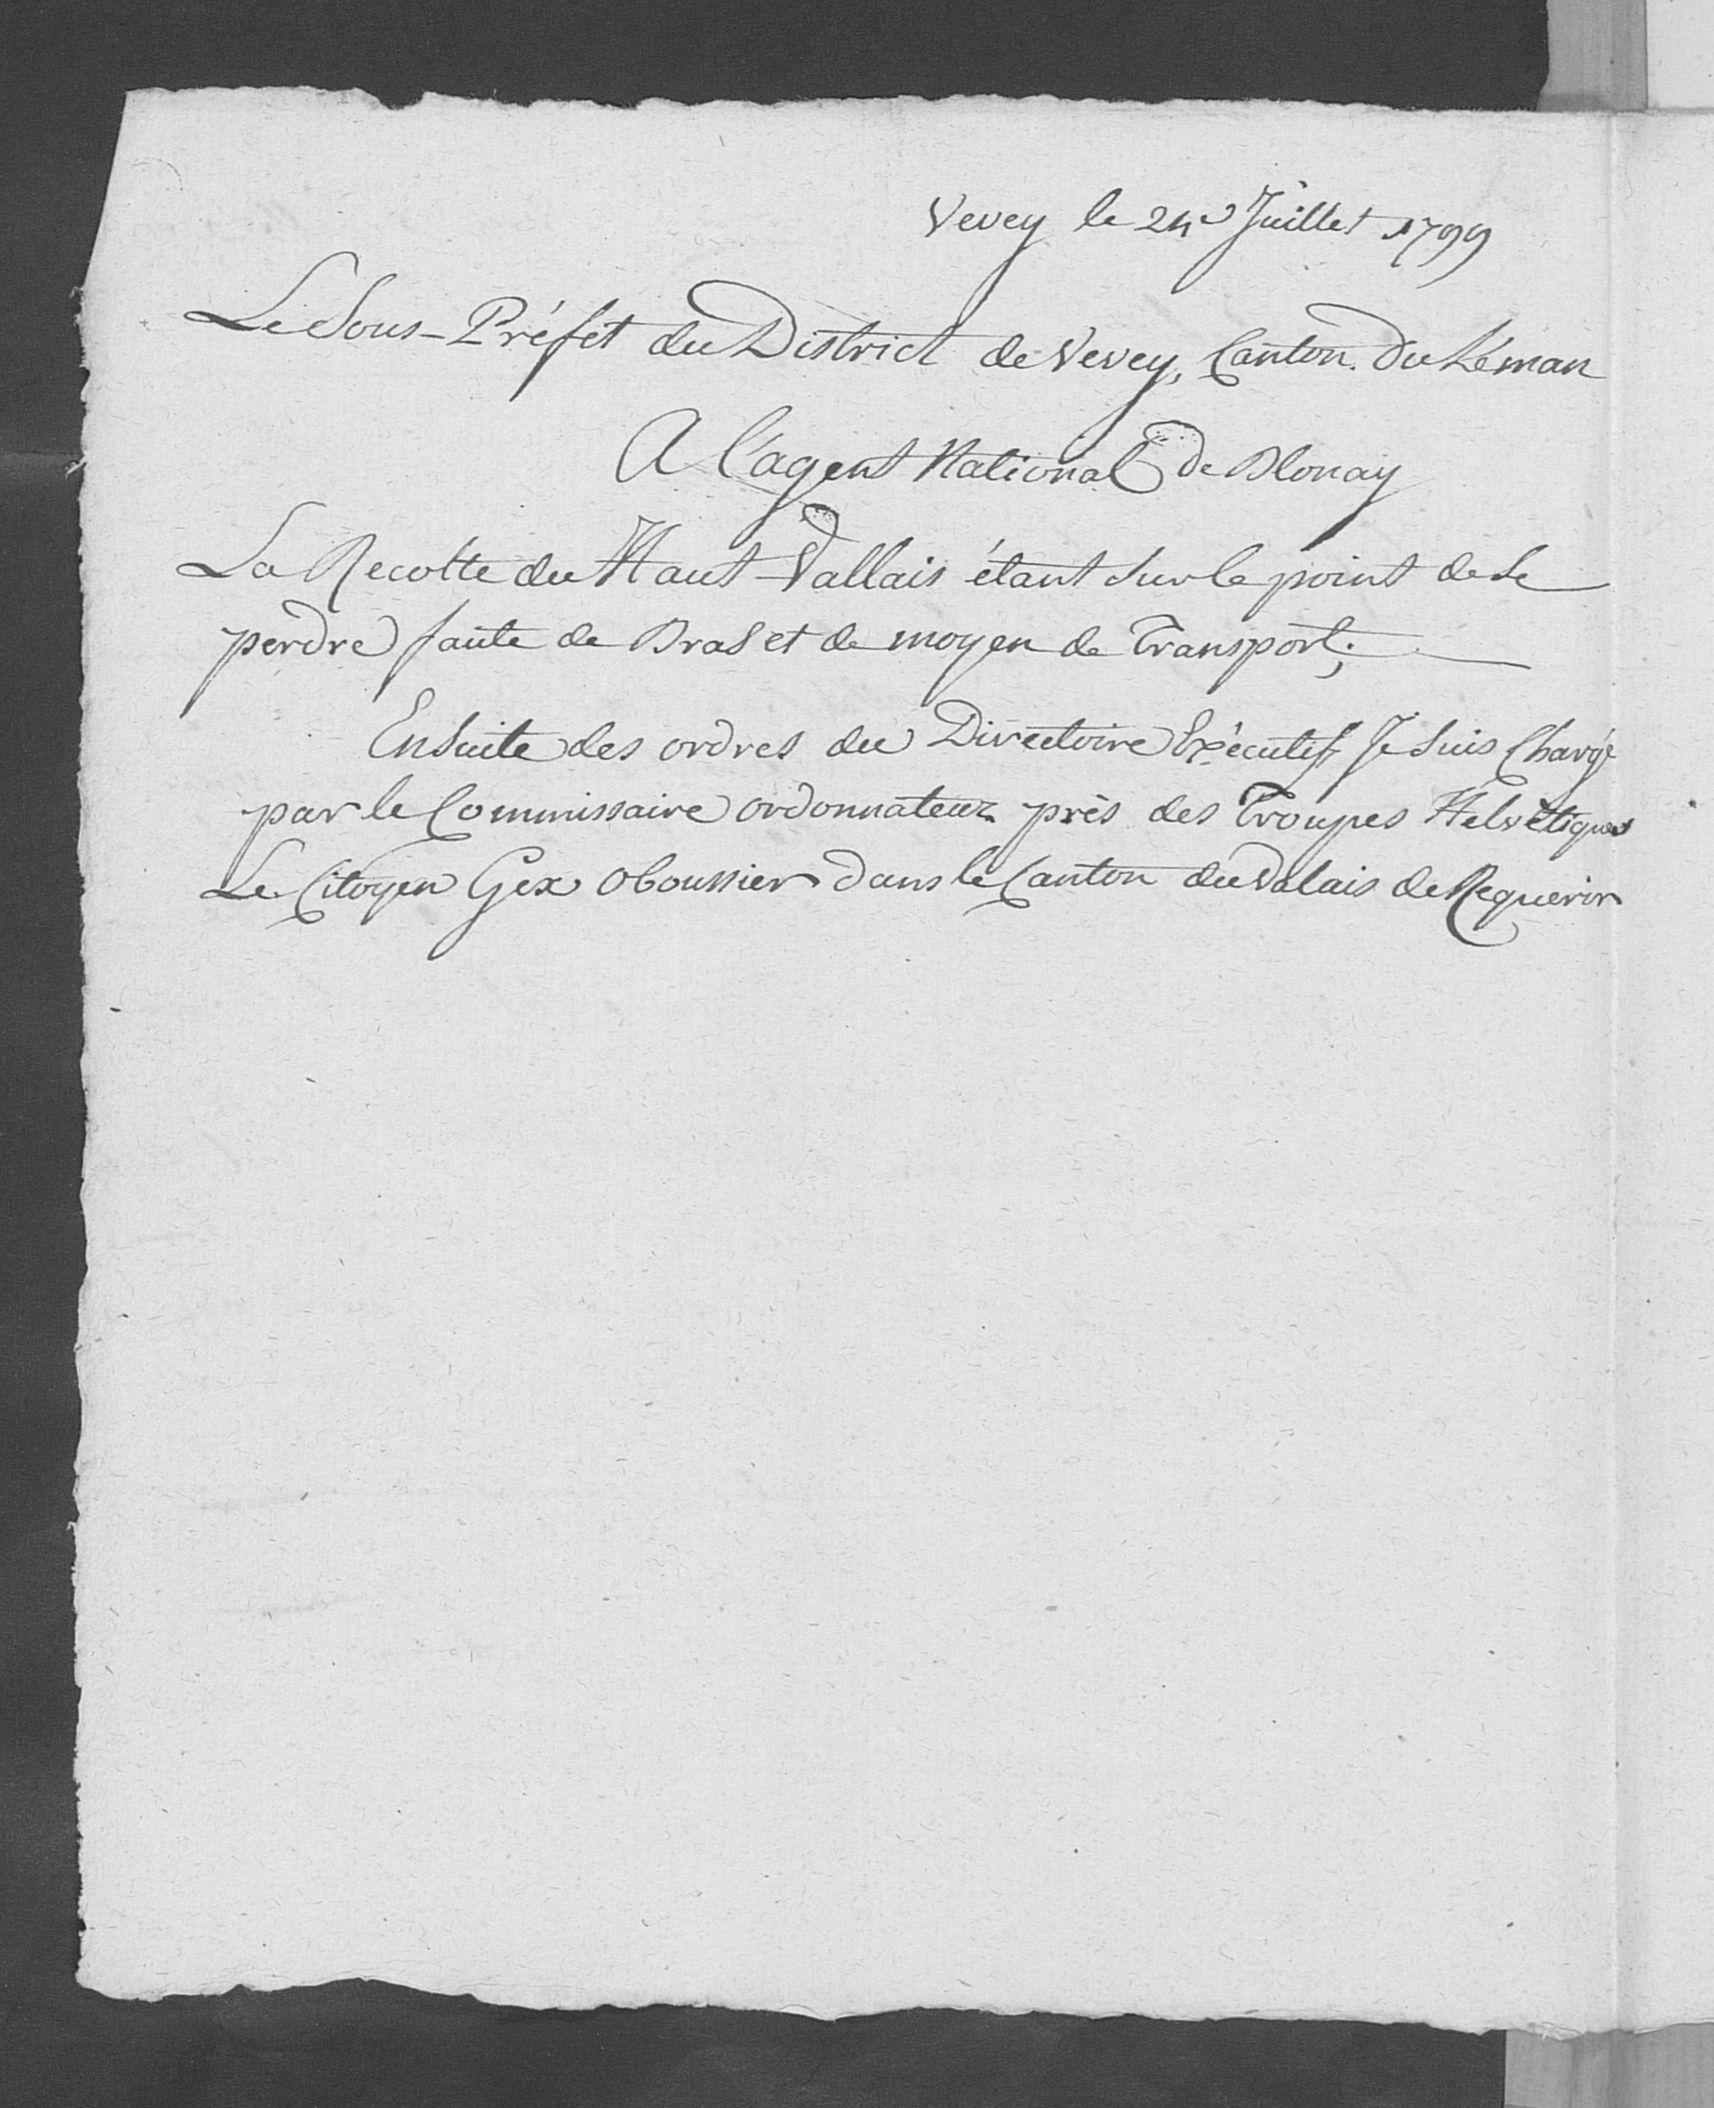 Vevey le 24e Juillet 1799
Le Sous-Préfet du District de Vevey, Canton du Léman
A l'agent National de Blonay
La Recolte du Haut-Vallais étant sur le point de se
perdre faute de Bras et de moyen de Transport;
Ensuite des ordres du Directoire Exécutif, Je suis Chargé
par le Commissaire ordonnateur près des Troupes Helvétiques
Le Citoyen Gex Oboussier dans le Canton du Valais de Requerir